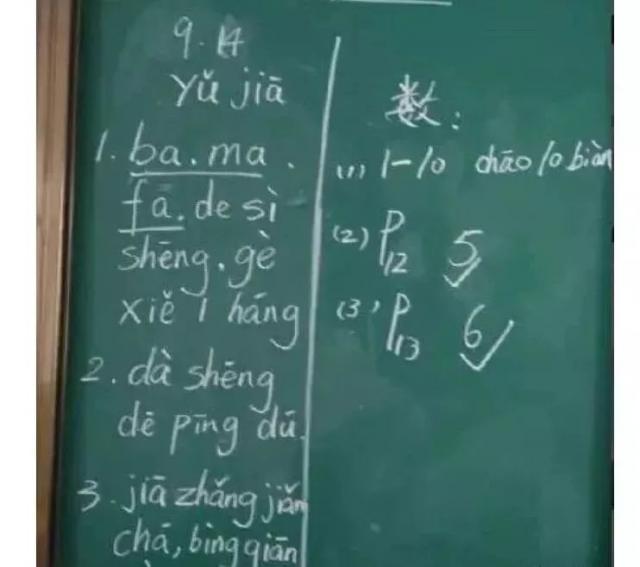 9.14
Yǔ jiā
1. ba. ma.
fa. de sì
shēng. gè
xiě 1 háng
2. dà shēng
dē pīng dú.
3. jiā zhǎng jiǎn
chá, bìng qiān
数:
(1) 1-10 chāo 10 biàn
(2) P12 5✓
(3) P13 6✓